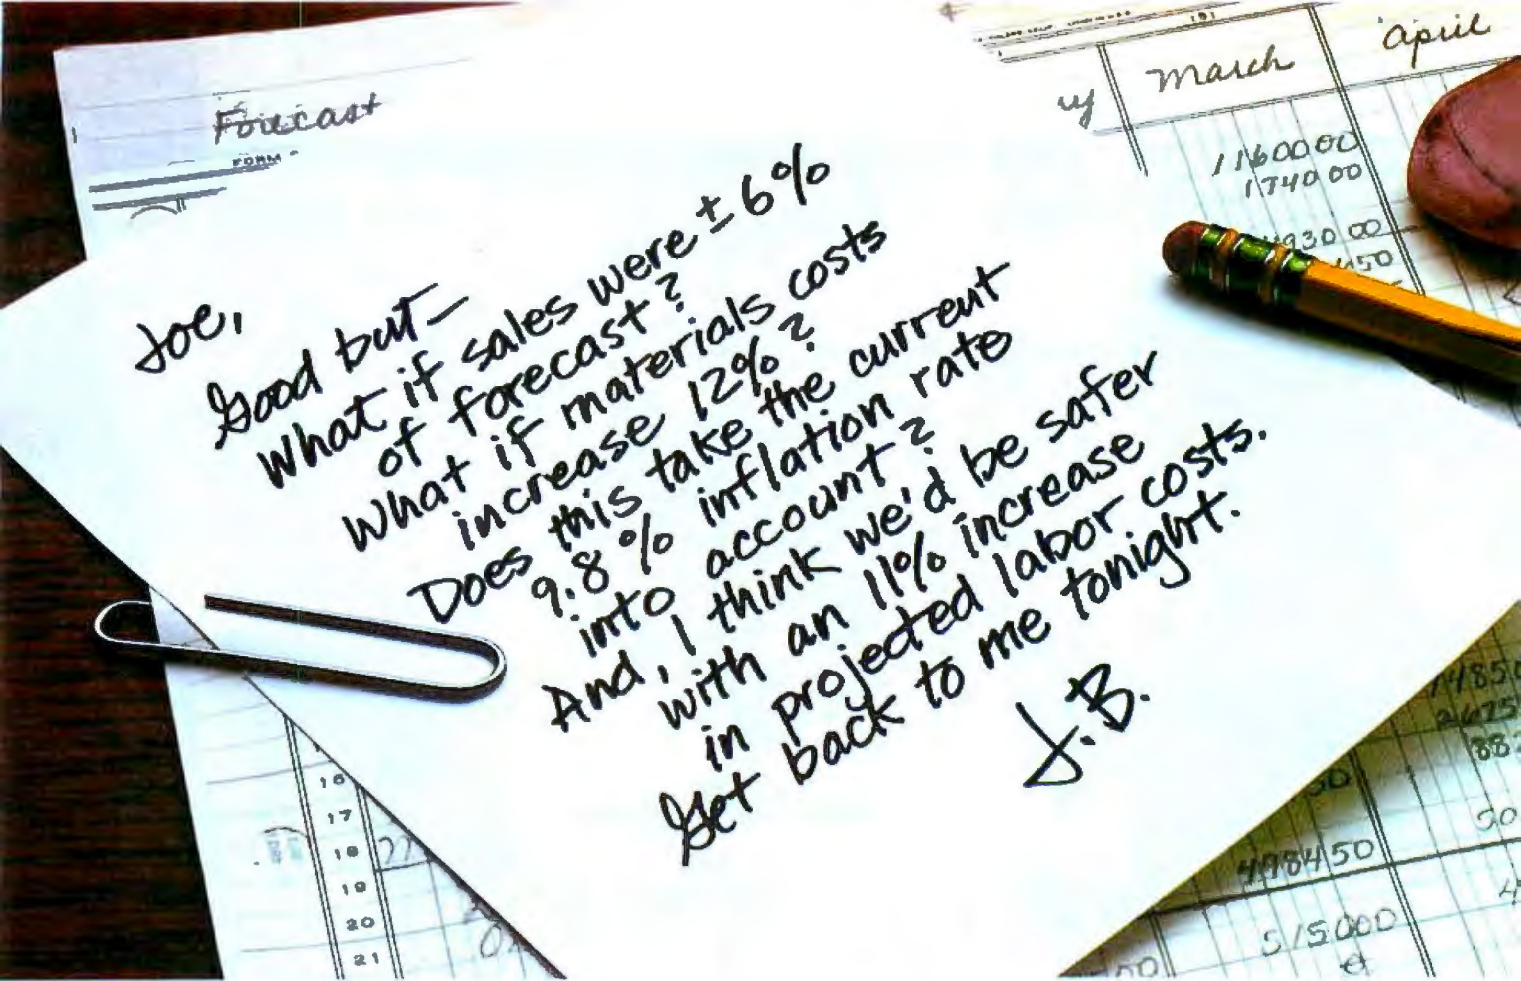 Forecast
FORM
March
April
1160000
174000
93000
450
Joe,
Good but—
What if sales were ± 6%
of forecast?
What if materials costs
increase 12%?
Does this take the current
9.8% inflation rate
into account?
And, I think we'd be safer
with an 11% increase
in projected labor costs.
Get back to me tonight.
J.B.
16
17
18
19
20
21
498450
515000